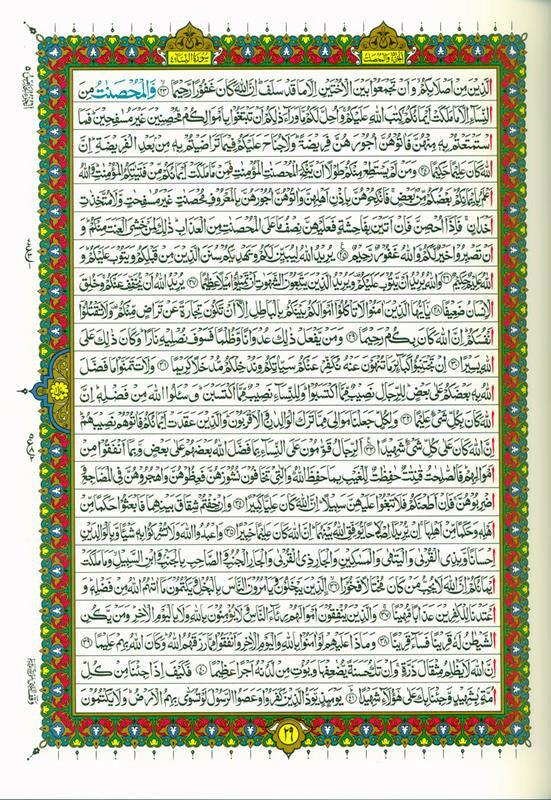 الجزء والمحصنت
سورة النساء
الَّذِينَ مِنْ أَصْلَابِكُمْ وَأَنْ تَجْمَعُوا بَيْنَ الْأُخْتَيْنِ إِلَّا مَا قَدْ سَلَفَ إِنَّ اللَّهَ كَانَ غَفُورًا رَحِيمًا ٢٣ وَالْمُحْصَنٰتُ مِنَ
النِّسَاءِ إِلَّا مَا مَلَكَتْ أَيْمَانُكُمْ كِتٰبَ اللَّهِ عَلَيْكُمْ وَأُحِلَّ لَكُمْ مَا وَرَاءَ ذٰلِكُمْ أَنْ تَبْتَغُوا بِأَمْوَالِكُمْ مُحْصِنِينَ غَيْرَ مُسٰفِحِينَ فَمَا
اسْتَمْتَعْتُمْ بِهِ مِنْهُنَّ فَآتُوهُنَّ أُجُورَهُنَّ فَرِيضَةً وَلَا جُنَاحَ عَلَيْكُمْ فِيمَا تَرَاضَيْتُمْ بِهِ مِنْ بَعْدِ الْفَرِيضَةِ إِنَّ
اللَّهَ كَانَ عَلِيمًا حَكِيمًا ٢٤ وَمَنْ لَمْ يَسْتَطِعْ مِنْكُمْ طَوْلًا أَنْ يَنْكِحَ الْمُحْصَنٰتِ الْمُؤْمِنٰتِ فَمِنْ مَا مَلَكَتْ أَيْمَانُكُمْ مِنْ فَتَيٰتِكُمُ الْمُؤْمِنٰتِ وَاللَّهُ
أَعْلَمُ بِإِيمَانِكُمْ بَعْضُكُمْ مِنْ بَعْضٍ فَانْكِحُوهُنَّ بِإِذْنِ أَهْلِهِنَّ وَآتُوهُنَّ أُجُورَهُنَّ بِالْمَعْرُوفِ مُحْصَنٰتٍ غَيْرَ مُسٰفِحٰتٍ وَلَا مُتَّخِذٰتِ
أَخْدَانٍ فَإِذَا أُحْصِنَّ فَإِنْ أَتَيْنَ بِفَاحِشَةٍ فَعَلَيْهِنَّ نِصْفُ مَا عَلَى الْمُحْصَنٰتِ مِنَ الْعَذَابِ ذٰلِكَ لِمَنْ خَشِيَ الْعَنَتَ مِنْكُمْ وَ
أَنْ تَصْبِرُوا خَيْرٌ لَكُمْ وَاللَّهُ غَفُورٌ رَحِيمٌ ٢٥ يُرِيدُ اللَّهُ لِيُبَيِّنَ لَكُمْ وَيَهْدِيَكُمْ سُنَنَ الَّذِينَ مِنْ قَبْلِكُمْ وَيَتُوبَ عَلَيْكُمْ وَ
اللَّهُ عَلِيمٌ حَكِيمٌ ٢٦ وَاللَّهُ يُرِيدُ أَنْ يَتُوبَ عَلَيْكُمْ وَيُرِيدُ الَّذِينَ يَتَّبِعُونَ الشَّهَوٰتِ أَنْ تَمِيلُوا مَيْلًا عَظِيمًا ٢٧ يُرِيدُ اللَّهُ أَنْ يُخَفِّفَ عَنْكُمْ وَخُلِقَ
الْإِنْسَانُ ضَعِيفًا ٢٨ يَا أَيُّهَا الَّذِينَ آمَنُوا لَا تَأْكُلُوا أَمْوَالَكُمْ بَيْنَكُمْ بِالْبَاطِلِ إِلَّا أَنْ تَكُونَ تِجَارَةً عَنْ تَرَاضٍ مِنْكُمْ وَلَا تَقْتُلُوا
أَنْفُسَكُمْ إِنَّ اللَّهَ كَانَ بِكُمْ رَحِيمًا ٢٩ وَمَنْ يَفْعَلْ ذٰلِكَ عُدْوَانًا وَظُلْمًا فَسَوْفَ نُصْلِيهِ نَارًا وَكَانَ ذٰلِكَ عَلَى
اللَّهِ يَسِيرًا ٣٠ إِنْ تَجْتَنِبُوا كَبَائِرَ مَا تُنْهَوْنَ عَنْهُ نُكَفِّرْ عَنْكُمْ سَيِّئَاتِكُمْ وَنُدْخِلْكُمْ مُدْخَلًا كَرِيمًا ٣١ وَلَا تَتَمَنَّوْا مَا فَضَّلَ
اللَّهُ بِهِ بَعْضَكُمْ عَلَى بَعْضٍ لِلرِّجَالِ نَصِيبٌ مِمَّا اكْتَسَبُوا وَلِلنِّسَاءِ نَصِيبٌ مِمَّا اكْتَسَبْنَ وَسْئَلُوا اللَّهَ مِنْ فَضْلِهِ إِنَّ
اللَّهَ كَانَ بِكُلِّ شَيْءٍ عَلِيمًا ٣٢ وَلِكُلٍّ جَعَلْنَا مَوَالِيَ مِمَّا تَرَكَ الْوَالِدَانِ وَالْأَقْرَبُونَ وَالَّذِينَ عَقَدَتْ أَيْمَانُكُمْ فَآتُوهُمْ نَصِيبَهُمْ
إِنَّ اللَّهَ كَانَ عَلَى كُلِّ شَيْءٍ شَهِيدًا ٣٣ الرِّجَالُ قَوّٰمُونَ عَلَى النِّسَاءِ بِمَا فَضَّلَ اللَّهُ بَعْضَهُمْ عَلَى بَعْضٍ وَبِمَا أَنْفَقُوا مِنْ
أَمْوَالِهِمْ فَالصّٰلِحٰتُ قٰنِتٰتٌ حٰفِظٰتٌ لِلْغَيْبِ بِمَا حَفِظَ اللَّهُ وَالّٰتِي تَخَافُونَ نُشُوزَهُنَّ فَعِظُوهُنَّ وَاهْجُرُوهُنَّ فِي الْمَضَاجِعِ وَ
اضْرِبُوهُنَّ فَإِنْ أَطَعْنَكُمْ فَلَا تَبْغُوا عَلَيْهِنَّ سَبِيلًا إِنَّ اللَّهَ كَانَ عَلِيًّا كَبِيرًا ٣٤ وَإِنْ خِفْتُمْ شِقَاقَ بَيْنِهِمَا فَابْعَثُوا حَكَمًا مِنْ
أَهْلِهِ وَحَكَمًا مِنْ أَهْلِهَا إِنْ يُرِيدَا إِصْلَاحًا يُوَفِّقِ اللَّهُ بَيْنَهُمَا إِنَّ اللَّهَ كَانَ عَلِيمًا خَبِيرًا ٣٥ وَاعْبُدُوا اللَّهَ وَلَا تُشْرِكُوا بِهِ شَيْئًا وَبِالْوَالِدَيْنِ
إِحْسَانًا وَبِذِي الْقُرْبَى وَالْيَتٰمَى وَالْمَسٰكِينِ وَالْجَارِ ذِي الْقُرْبَى وَالْجَارِ الْجُنُبِ وَالصَّاحِبِ بِالْجَنْبِ وَابْنِ السَّبِيلِ وَمَا مَلَكَتْ
أَيْمَانُكُمْ إِنَّ اللَّهَ لَا يُحِبُّ مَنْ كَانَ مُخْتَالًا فَخُورًا ٣٦ الَّذِينَ يَبْخَلُونَ وَيَأْمُرُونَ النَّاسَ بِالْبُخْلِ وَيَكْتُمُونَ مَا آتٰهُمُ اللَّهُ مِنْ فَضْلِهِ وَ
أَعْتَدْنَا لِلْكَافِرِينَ عَذَابًا مُهِينًا ٣٧ وَالَّذِينَ يُنْفِقُونَ أَمْوَالَهُمْ رِئَاءَ النَّاسِ وَلَا يُؤْمِنُونَ بِاللَّهِ وَلَا بِالْيَوْمِ الْآخِرِ وَمَنْ يَكُنِ
الشَّيْطٰنُ لَهُ قَرِينًا فَسَاءَ قَرِينًا ٣٨ وَمَاذَا عَلَيْهِمْ لَوْ آمَنُوا بِاللَّهِ وَالْيَوْمِ الْآخِرِ وَأَنْفَقُوا مِمَّا رَزَقَهُمُ اللَّهُ وَكَانَ اللَّهُ بِهِمْ عَلِيمًا ٣٩
إِنَّ اللَّهَ لَا يَظْلِمُ مِثْقَالَ ذَرَّةٍ وَإِنْ تَكُ حَسَنَةً يُضٰعِفْهَا وَيُؤْتِ مِنْ لَدُنْهُ أَجْرًا عَظِيمًا ٤٠ فَكَيْفَ إِذَا جِئْنَا مِنْ كُلِّ
أُمَّةٍ بِشَهِيدٍ وَجِئْنَا بِكَ عَلَى هٰؤُلَاءِ شَهِيدًا ٤١ يَوْمَئِذٍ يَوَدُّ الَّذِينَ كَفَرُوا وَعَصَوُا الرَّسُولَ لَوْ تُسَوَّى بِهِمُ الْأَرْضُ وَلَا يَكْتُمُونَ
٢٩